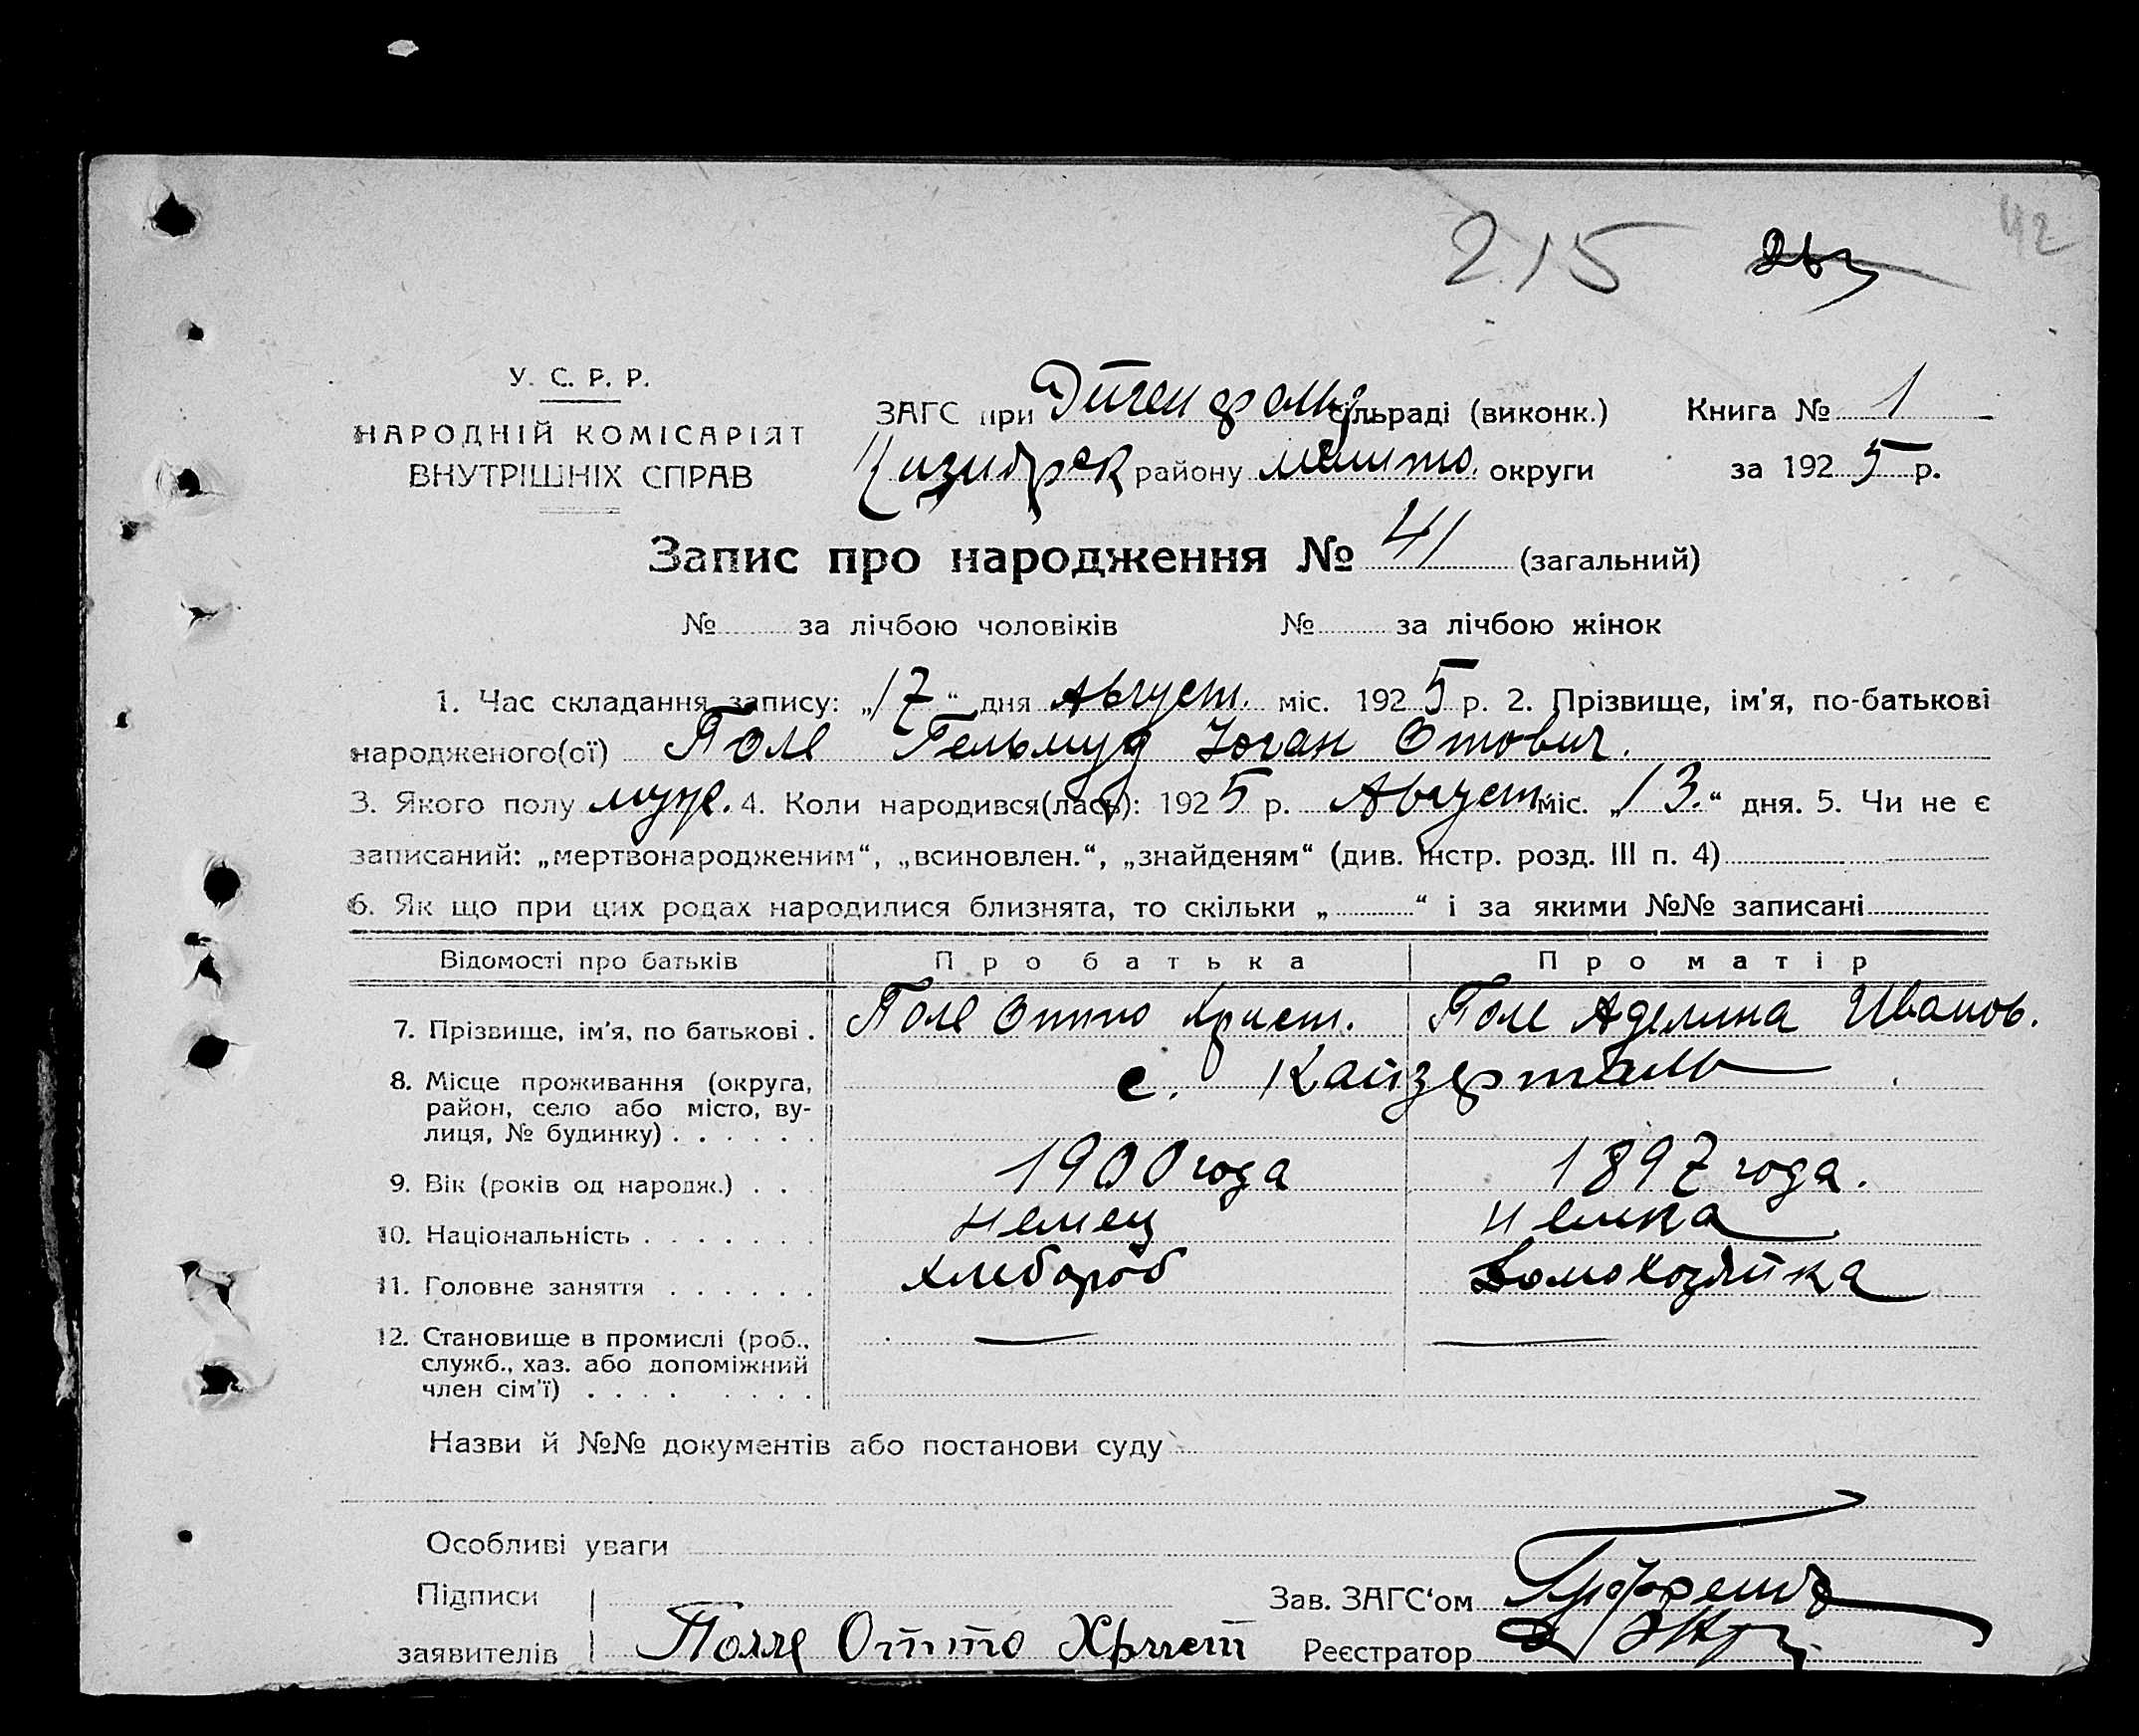 42
215
У. С. Р. Р.
НАРОДНІЙ КОМІСАРІЯТ
ВНУТРІШНІХ СПРАВ
ЗАГС при сільраді (виконк.) Книга № 1
району округи за 1925 р.
Запис про народження № 41 (загальний)
№ за лічбою чоловіків № за лічбою жінок
1. Час складання запису: „17“ дня Август. міс. 1925 р. 2. Прізвище, ім'я, по-батькові
народженого(ої) Поле Гельмуд Йоган Отович.
3. Якого полу муж. 4. Коли народився(лась): 1925 р. Август міс. „13.“ дня. 5. Чи не є
записаний: „мертвонародженим“, „всиновлен.“, „знайденям“ (див. інстр. розд. III п. 4)
6. Як що при цих родах народилися близнята, то скільки „ “ і за якими №№ записані
Відомості про батьків Про батька Про матір
7. Прізвище, ім'я, по батькові . Поле Отто Христ. Поле Аделина Иванов.
8. Місце проживання (округа, с. Кайзерталь
район, село або місто, ву-
лиця, № будинку) . . . . . .
9. Вік (років од народж.) . . . 1900 года 1897 года.
10. Національність . . . . . . . Немец Немка
11. Головне заняття . . . . . . Хлебороб Домохозяйка
12. Становище в промислі (роб., — —
служб., хаз. або допоміжний
член сім'ї) . . . . . . . .
Назви й №№ документів або постанови суду
Особливі уваги
Підписи Зав. ЗАГС'ом
заявителів Полле Отто Христ Реєстратор